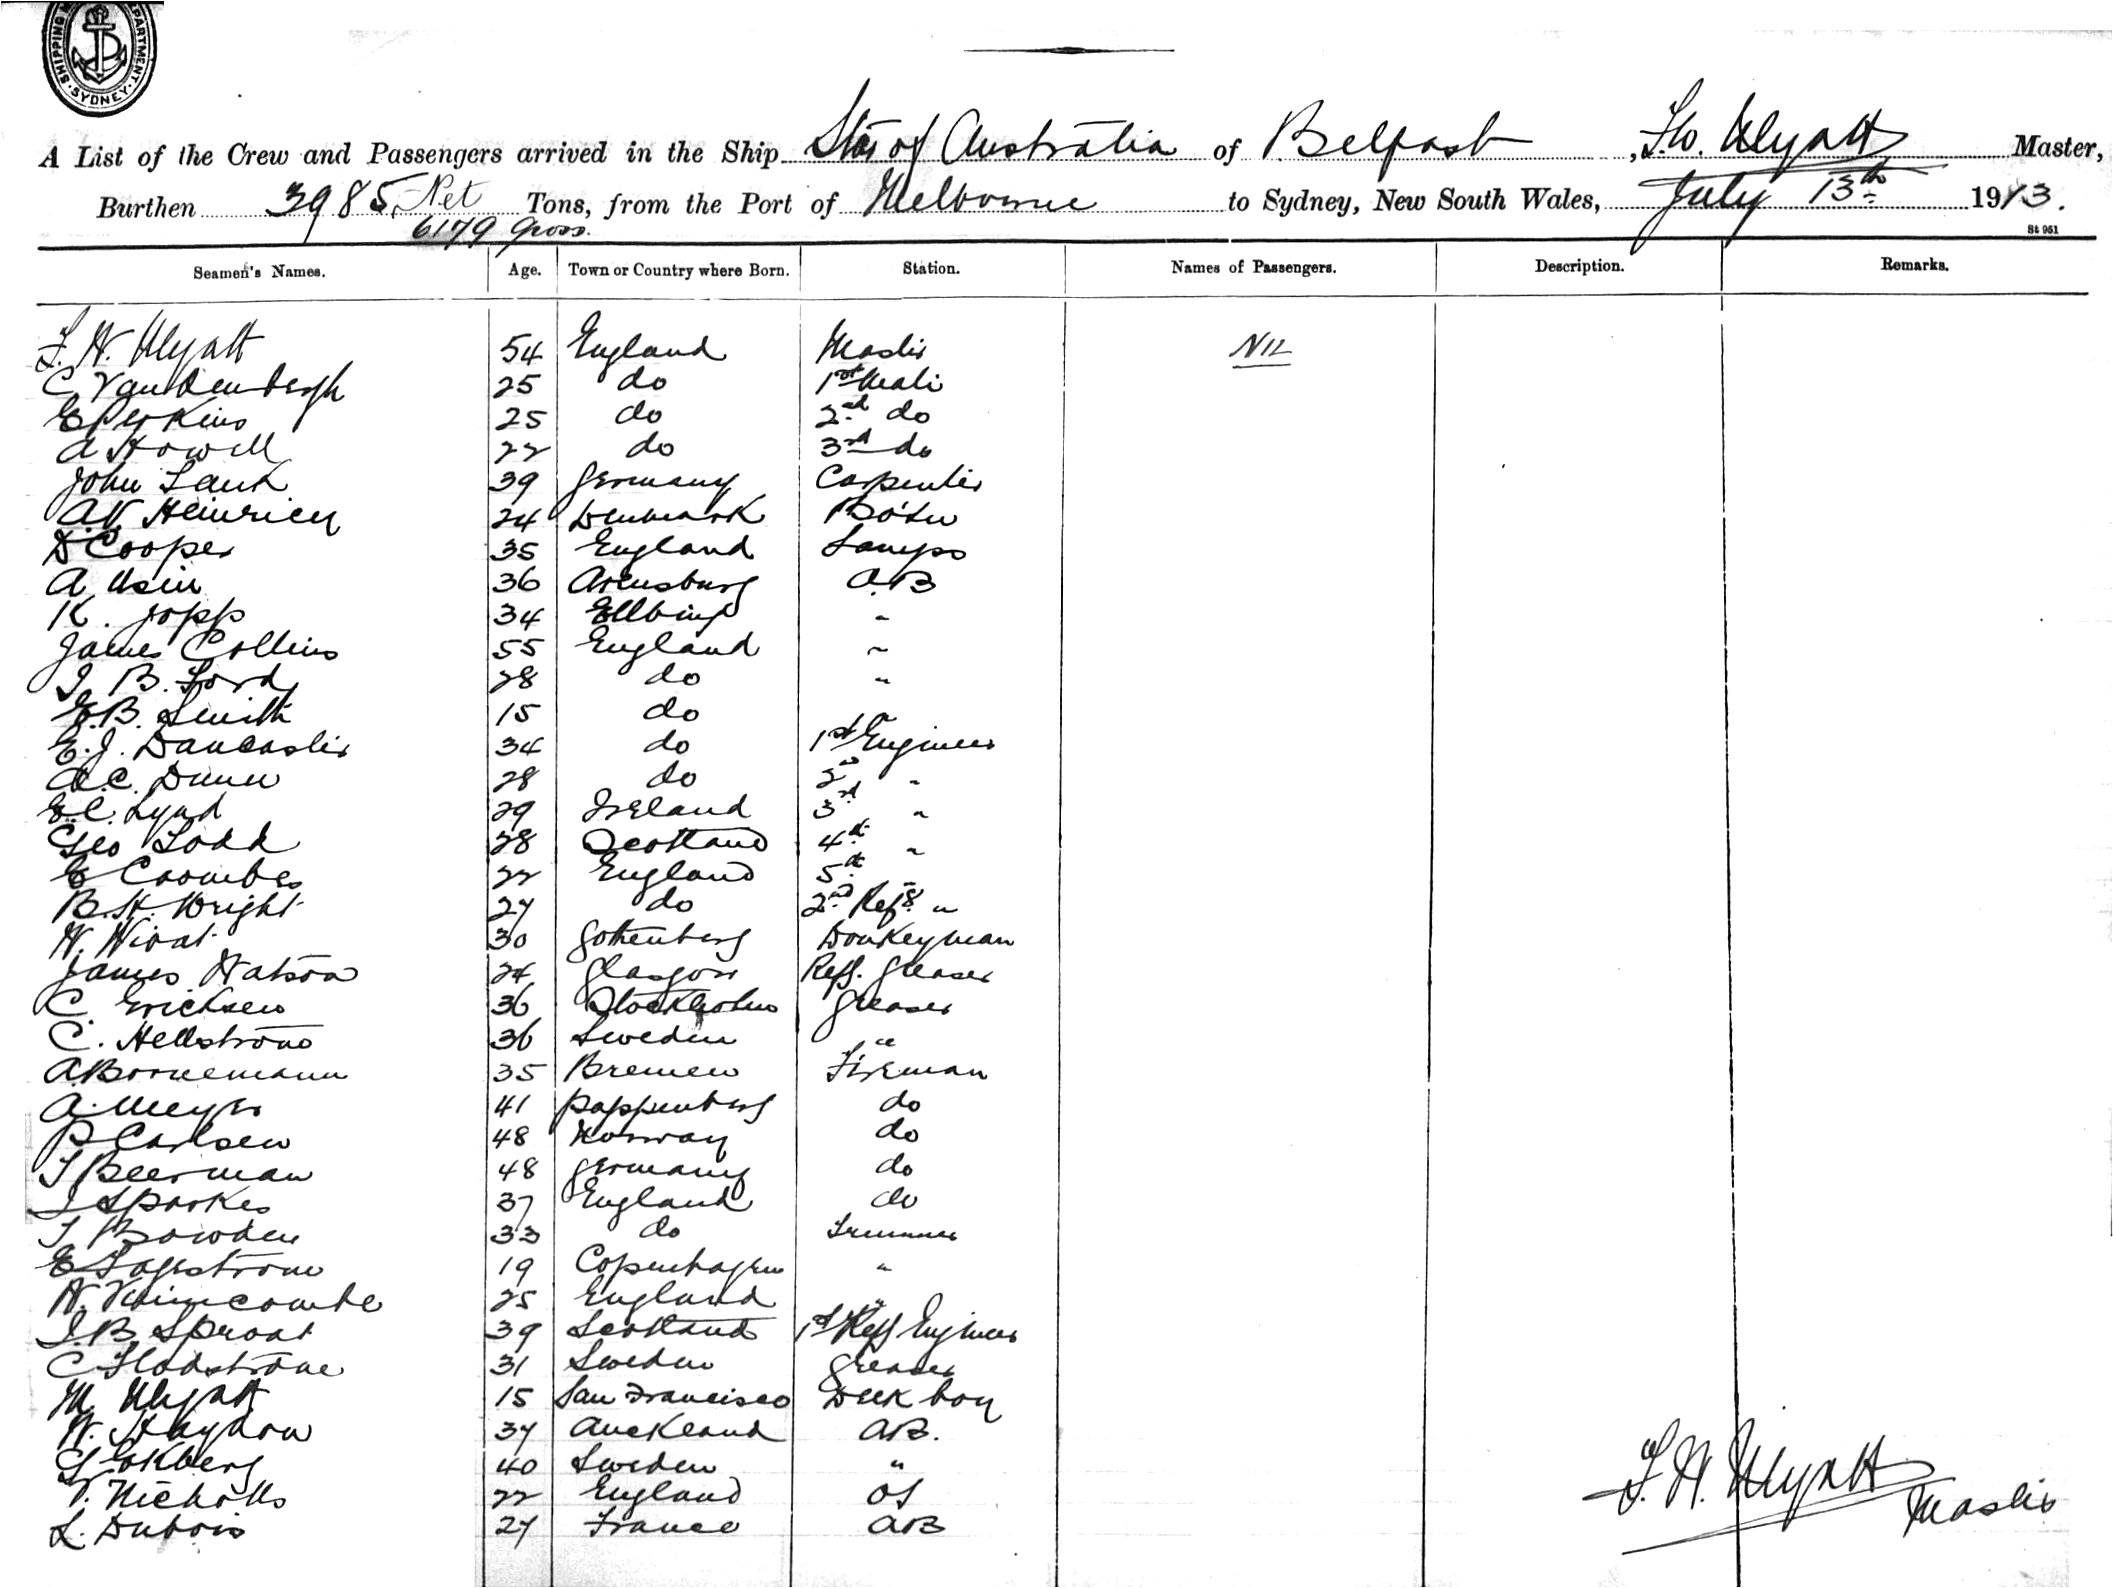 SHIPPING DEPARTMENT SYDNEY
A List of the Crew and Passengers arrived in the Ship Star of Australia of Belfast, F.W. Wyatt Master,
Burthen 3985 Net Tons, from the Port of Melbourne to Sydney, New South Wales, July 13th 1913.
6179 Gross.
St 951
Seamen's Names. Age. Town or Country where Born. Station. Names of Passengers. Description. Remarks.
F. W. Wyatt 54 England Master NIL
C Vandenbergh 25 do 1st Mate
E Perkins 25 do 2nd do
A Howell 22 do 3rd do
John Lank 39 Germany Carpenter
A.V. Heinricy 24 Denmark Bo'sn
D Cooper 35 England Lamps
A Usin 36 Arensburg A.B
K. Jopp 34 Ellbing "
James Collins 55 England "
J. B. Ford 28 do "
E.B. Smith 15 do "
E.J. Dancaster 34 do 1st Engineer
A.C. Dunn 28 do 2nd "
E.C. Lynd 29 Ireland 3rd "
Geo Todd 28 Scotland 4th "
E Coombes 22 England 5th "
B.H. Wright 27 do 2nd Refg "
W. 30 Gothenberg Donkeyman
James Watson 24 Glasgow Refg. Greaser
C. Ericksen 36 Stockholm Greaser
C. Hellstrom 36 Sweden "
A Bornemann 35 Bremen Fireman
A. Meyer 41 Pappenberg do
P Carlsen 48 Norway do
J Beerman 48 Germany do
J Sparkes 37 England do
J Bowden 33 do Trimmer
E Lagestrom 19 Copenhagen "
W. Vinnicombe 25 England "
J.B. Sproat 39 Scotland 1st Refg Engineer
C Flodstrom 31 Sweden Greaser
M Wyatt 15 San Francisco Deck boy
W. Haydon 37 Auckland AB.
G Ekberg 40 Sweden "
T. Nicholls 22 England OS
L. Dubois 27 France AB
F. W. Wyatt
Master